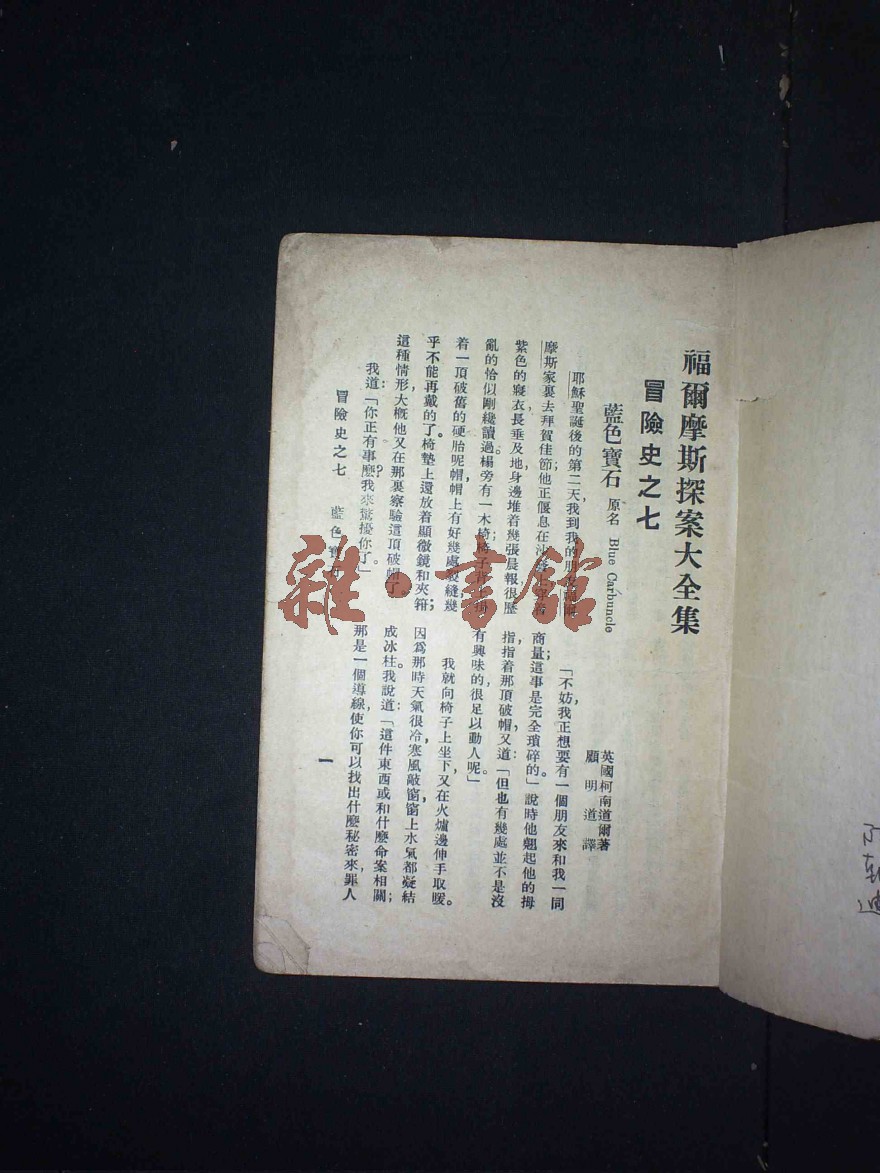 福爾摩斯探案大全集
冒險史之七
藍色寶石 原名 Blue Carbuncle
英國柯南道爾著
顧明道譯
耶穌聖誕後的第二天，我到我的朋友福爾
摩斯家裏去拜賀佳節；他正偃息在沙發上，穿着
紫色的寢衣，長垂及地，身邊堆着幾張晨報，很歷
亂的恰似剛纔讀過。榻旁有一木椅，椅子背上掛
着一頂破舊的硬胎呢帽，帽上有好幾處裂縫，幾
乎不能再戴的了。椅墊上還放着顯微鏡和夾箝；
這種情形大概他又在那裏察驗這頂破帽了。
我道：「你正有事麼？我來驚擾你了。」
「不妨，我正想要有一個朋友來和我一同
商量；這事是完全瑣碎的。」說時他翹起他的拇
指，指着那頂破帽，又道：「但也有幾處並不是沒
有興味的，很足以動人呢。」
我就向椅子上坐下，又在火爐邊伸手取暖。
因爲那時天氣很冷，寒風敲窗，窗上水氣都凝結
成冰柱。我說道：「這件東西或和什麼命案相關；
那是一個導線，使你可以找出什麼秘密來，罪人
冒險史之七 藍色寶石
一
雜·書館